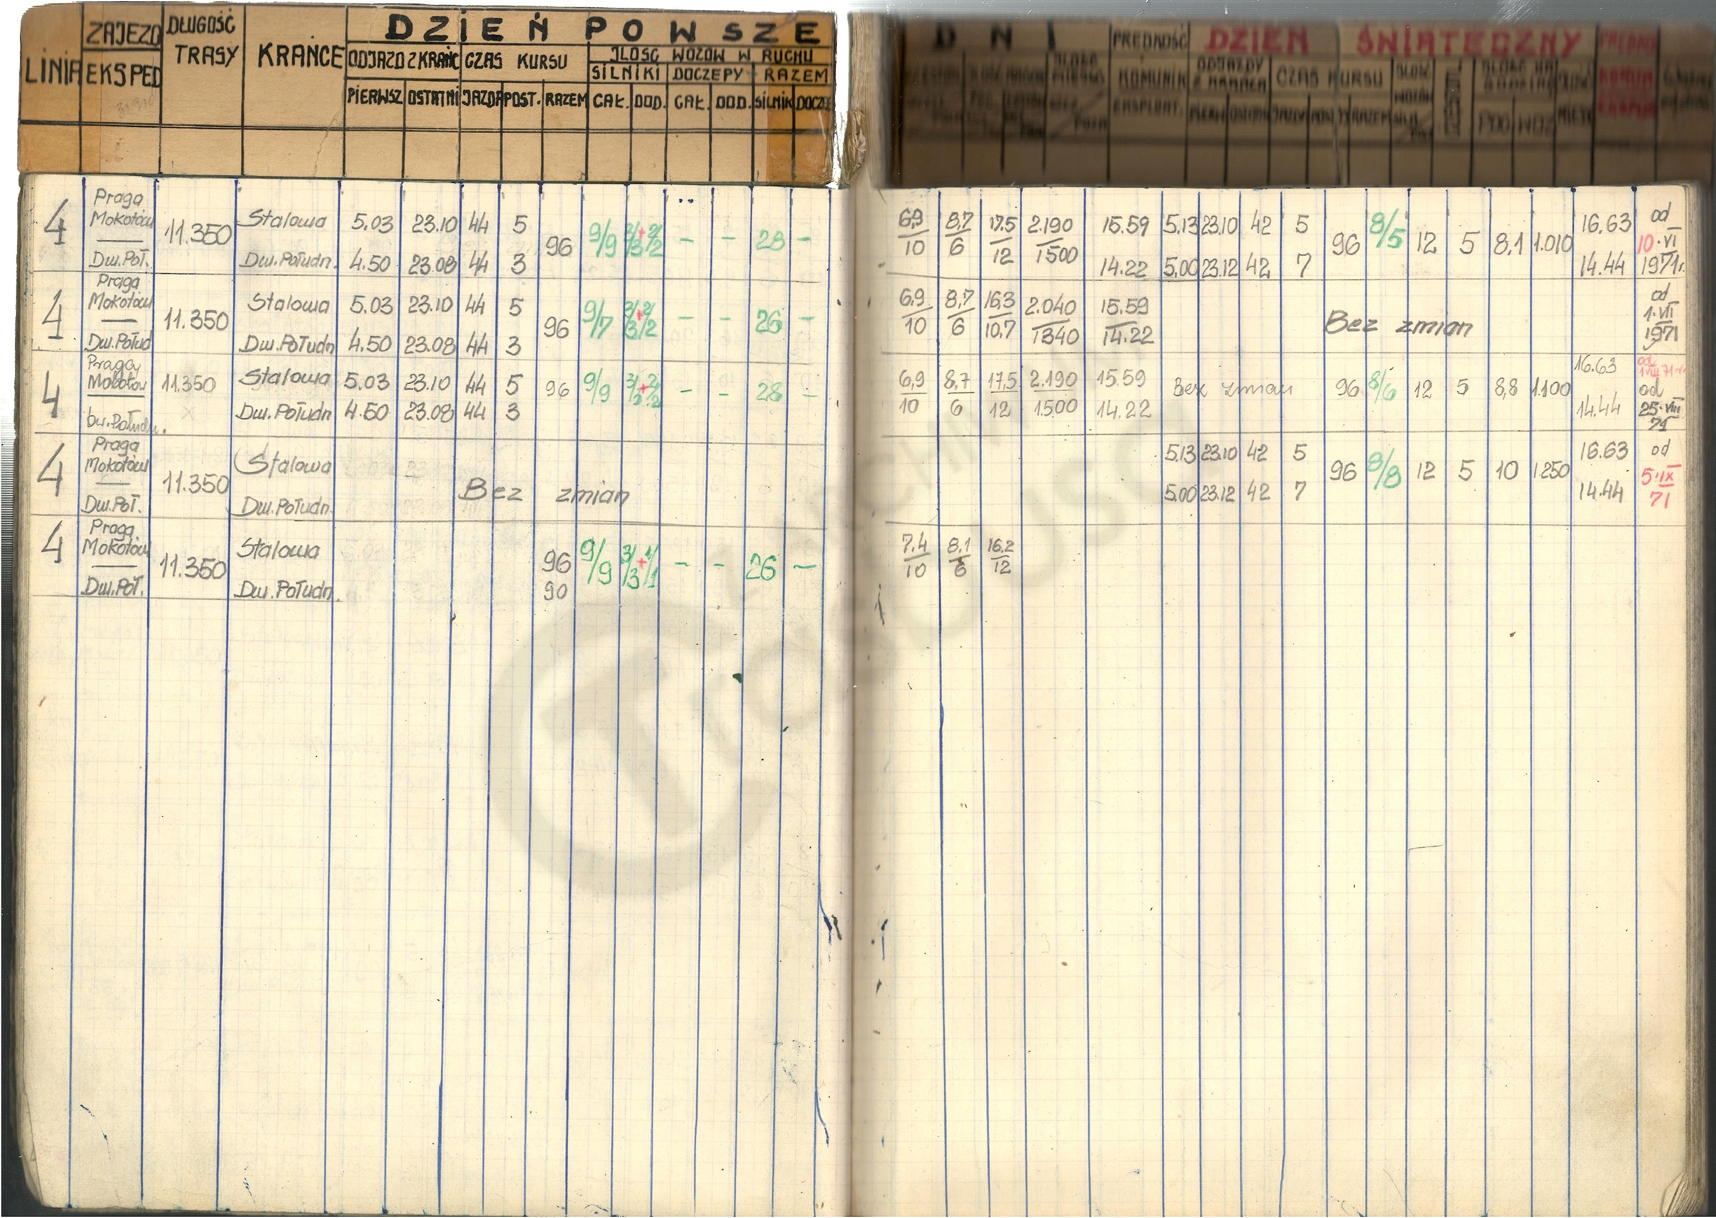 LINIA ZAJEZD EKSPED DŁUGOŚĆ TRASY KRAŃCE DZIEŃ POWSZE
ODJAZD Z KRAŃC CZAS KURSU ILOŚĆ WOZÓW W RUCHU
SILNIKI DOCZEPY RAZEM
PIERWSZ OSTATNI JAZDA POST. RAZEM CAŁ. DOD. CAŁ. DOD. SILNIK DOCZE
DNI PRĘDKOŚĆ DZIEŃ ŚWIĄTECZNY
KOMUNIK EKSPLOAT. ODJAZDY Z KRAŃCA CZAS KURSU
4 Praga Mokotów Dw.Poł. 11.350 Stalowa 5.03 23.10 44 5 96 9/9 – – 28 –
Dw.Połudn. 4.50 23.08 44 3
6,9/10 8,7/6 17,5/12 2.190/1500 15.59 5.13 23.10 42 5 96 8/5 12 5 8,1 1.010 16.63 od 10.VI 1971r.
14.22 5.00 23.12 42 7 14.44
4 Praga Mokotów Dw.Połud 11.350 Stalowa 5.03 23.10 44 5 96 9/7 – – 26 –
Dw.Połudn 4.50 23.08 44 3
6,9/10 8,7/6 16,3/10,7 2.040/1340 15.59/14.22 Bez zmian od 1.VII 1971
4 Praga Mokotów Dw.Połudn. 11.350 Stalowa 5.03 23.10 44 5 96 9/9 – – 28 –
Dw.Połudn 4.50 23.08 44 3
6,9/10 8,7/6 17,5/12 2.190/1500 15.59 Bez zmian 96 8/6 12 5 8,8 1.100 16.63 od 25.VIII 71
14.22 14.44
4 Praga Mokotów Dw.Poł. 11.350 Stalowa
Dw.Połudn. Bez zmian
5.13 23.10 42 5 96 8/8 12 5 10 1.250 16.63 od 5.IX 71
5.00 23.12 42 7 14.44
4 Praga Mokotów Dw.Poł. 11.350 Stalowa 96 9/9 3/3+1/1 – – 26 –
Dw.Połudn. 90
7,4/10 8,1/6 16,2/12